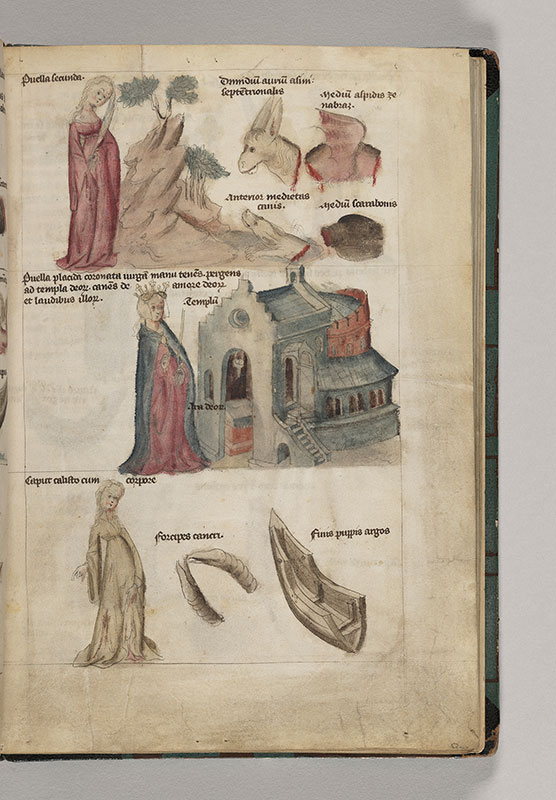 Puella secunda.
Dimidiū auriū asini
septētrionalis
Mediū aspidis ze
nabraz.
Anterior medietas
canis.
Mediū scarabonis
Puella placida coronata uirgā manu tenēs. pergens
ad templa deoꝝ. canēs de amore deoꝝ
et laudibus illoꝝ.
Templū
Ara deoꝝ.
Caput calisto cum corpore
Forcipes cancri.
Finis puppis argos